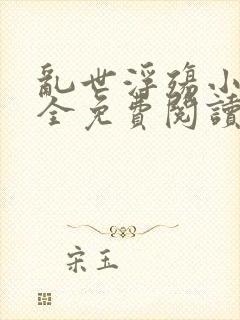 亂世浮殤小
全免費閱讀
宋玉